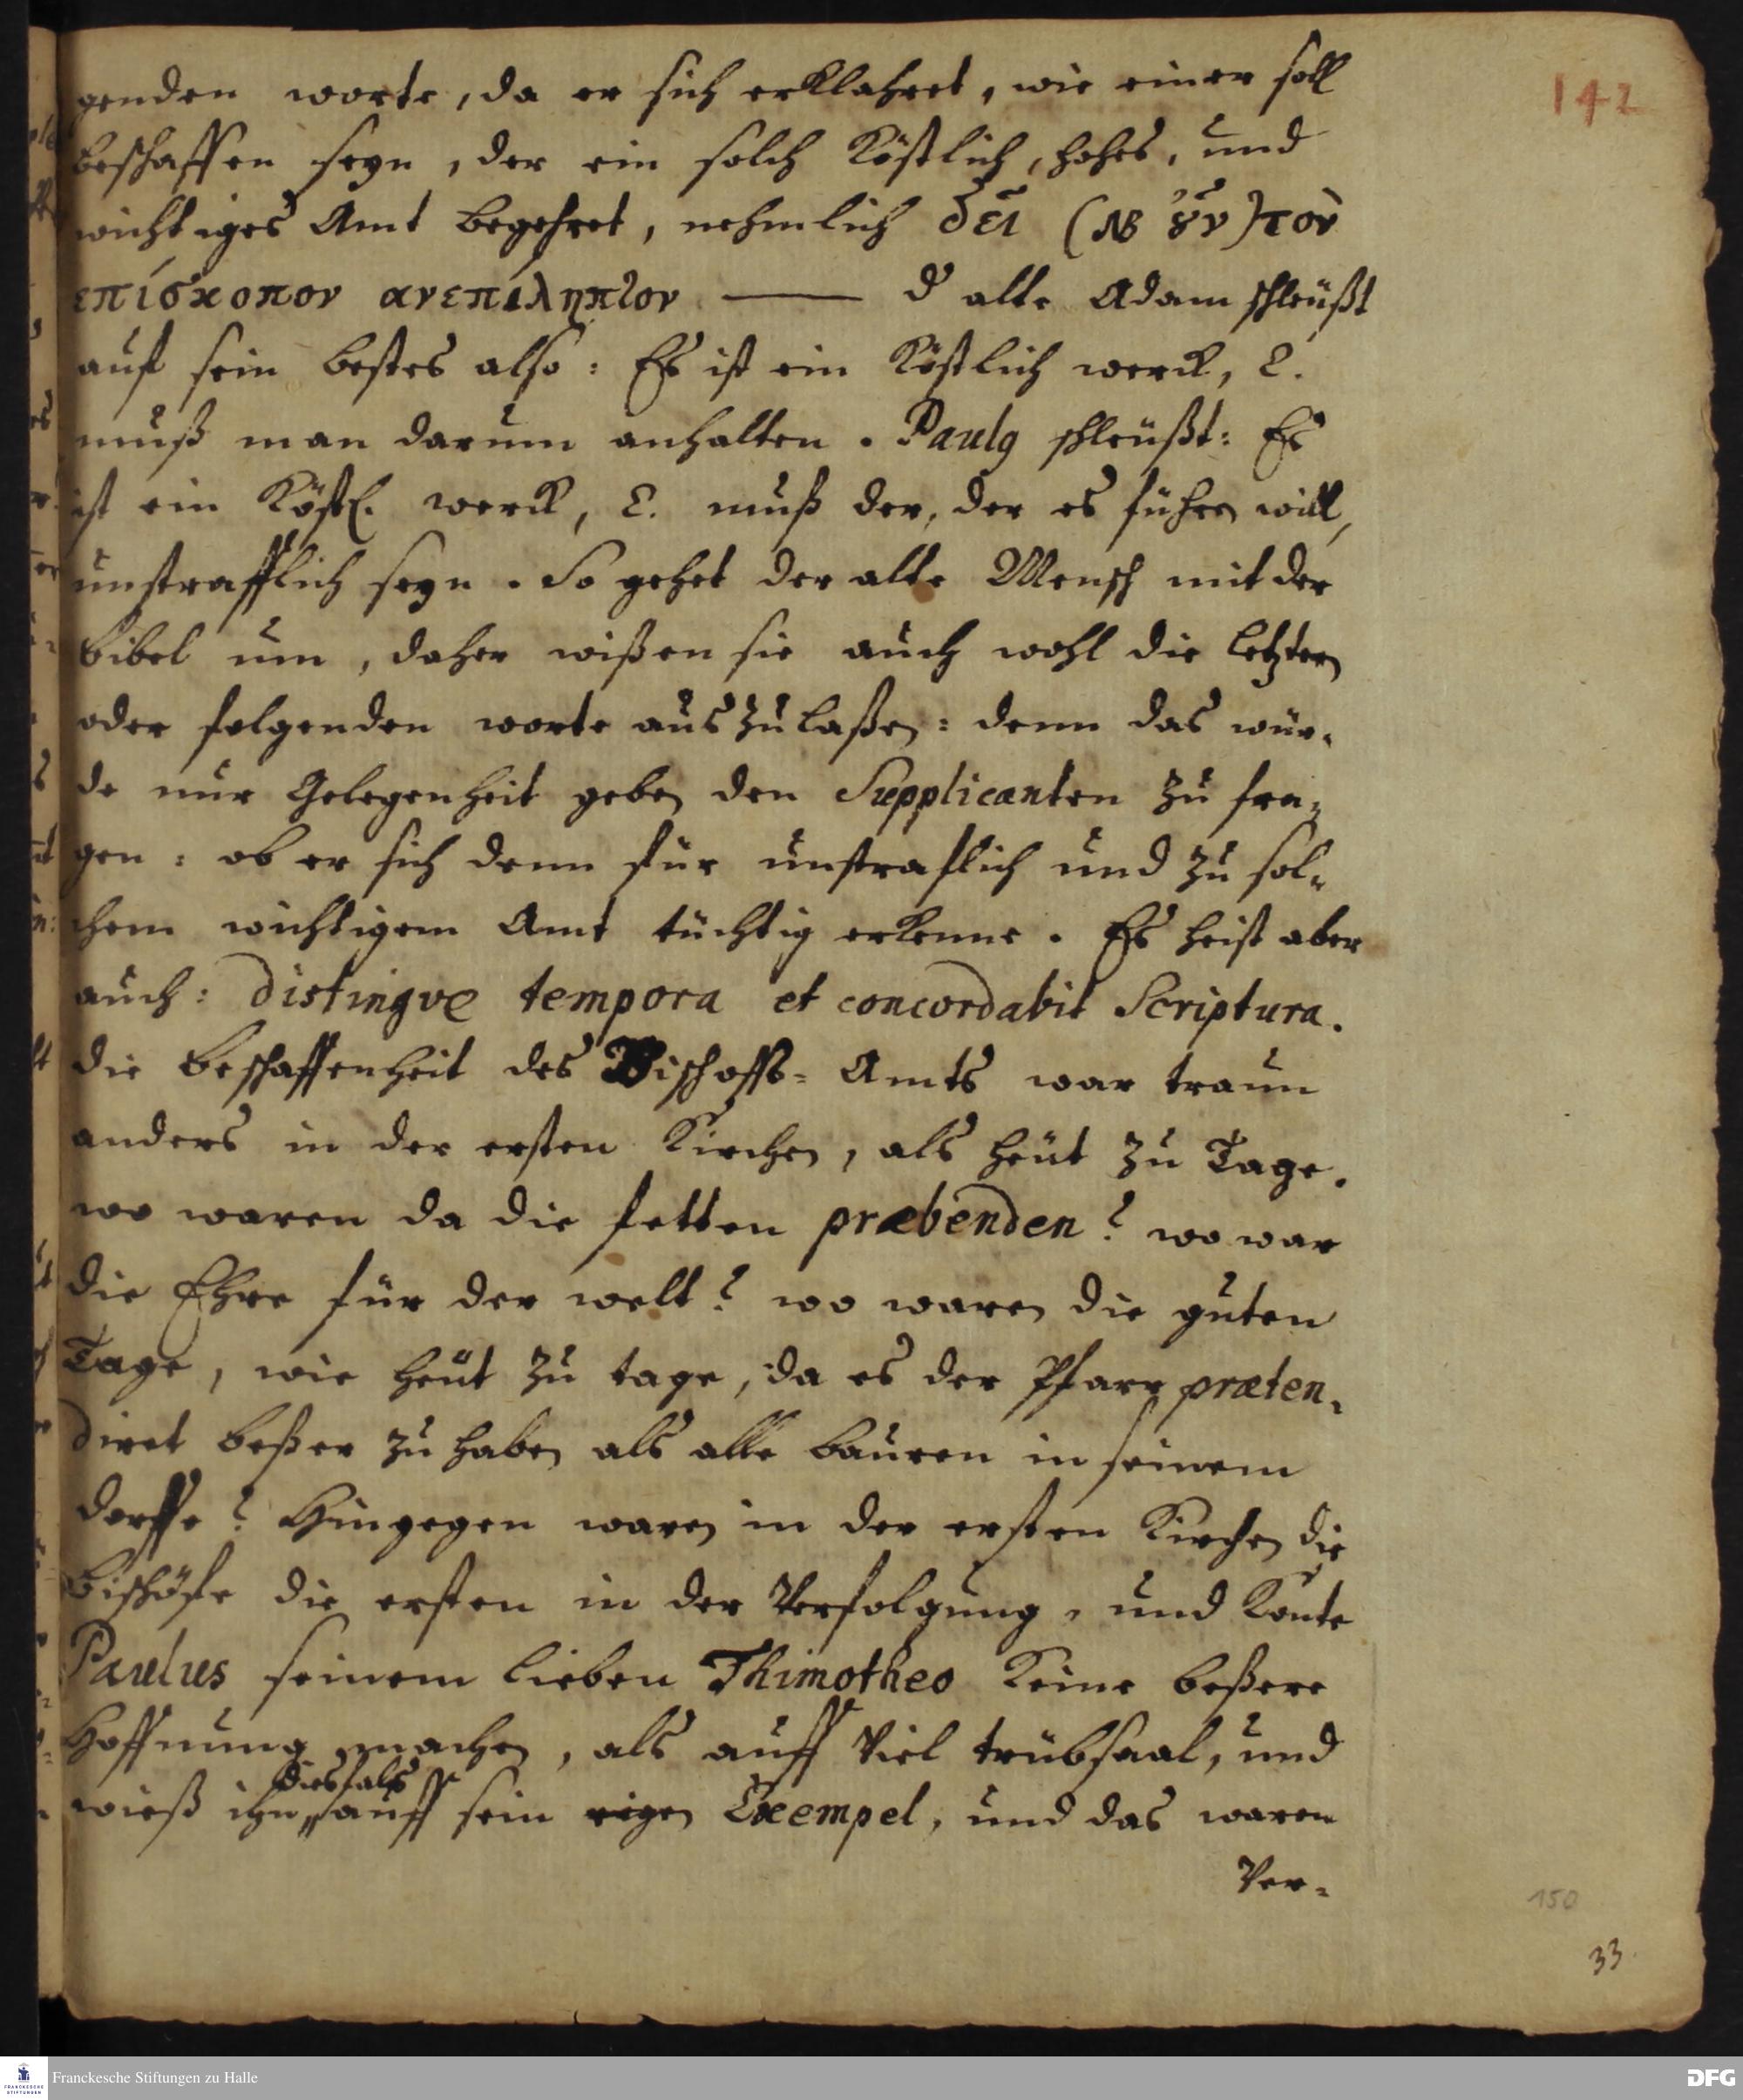 142
genden worte, da er sich erklahret, wie einer soll
beschaffen seyn, der ein solch köstlich, hohes, und
wichtiges Amt begehret, nehmlich δεῖ (NB ȣ̓͂ν) τὸν
επίσκοπον ανεπίληπτον —— d alte Adam schleüßt
auf sein bestes also: Es ist ein köstlich werck, E.
muß man darum anhalten. Paulꝰ schleüßt: Es
ist ein köstl. werck, E. muß der, der es führen will,
unstrafflich seyn. So gehet der alte Mensch mit der
bibel um, daher wißen sie auch wohl die letztern
oder folgenden worte auszulaßen: denn das wür-
de nur Gelegenheit geben den Supplicanten zu fra-
gen: ob er sich denn für unstraflich und zu sol-
chem wichtigem Amt tüchtig erkenne. Es heist aber
auch: distingve tempora et concordabit Scriptura.
die beschaffenheit des Bischoffs-Amts war traun
anders in der ersten Kirchen, als heüt zu Tage.
wo waren da die fetten præbenden? wo war
die Ehre für der welt? wo waren die guten
Tage, wie heüt zu tage, da es der Pfarr præten-
diret beßer zu haben als alle bauren in seinem
dorffe? Hingegen waren in der ersten Kirchen die
bischöfe die ersten in der Verfolgung, und konte
Paulus seinem lieben Thimotheo keine beßere
Hoffnung machen, als auff viel trübsaal, und
diesfals
wieß ihn auff sein eigen Exempel, und das waren
Ver-
150
33.
Franckesche Stiftungen zu Halle
DFG